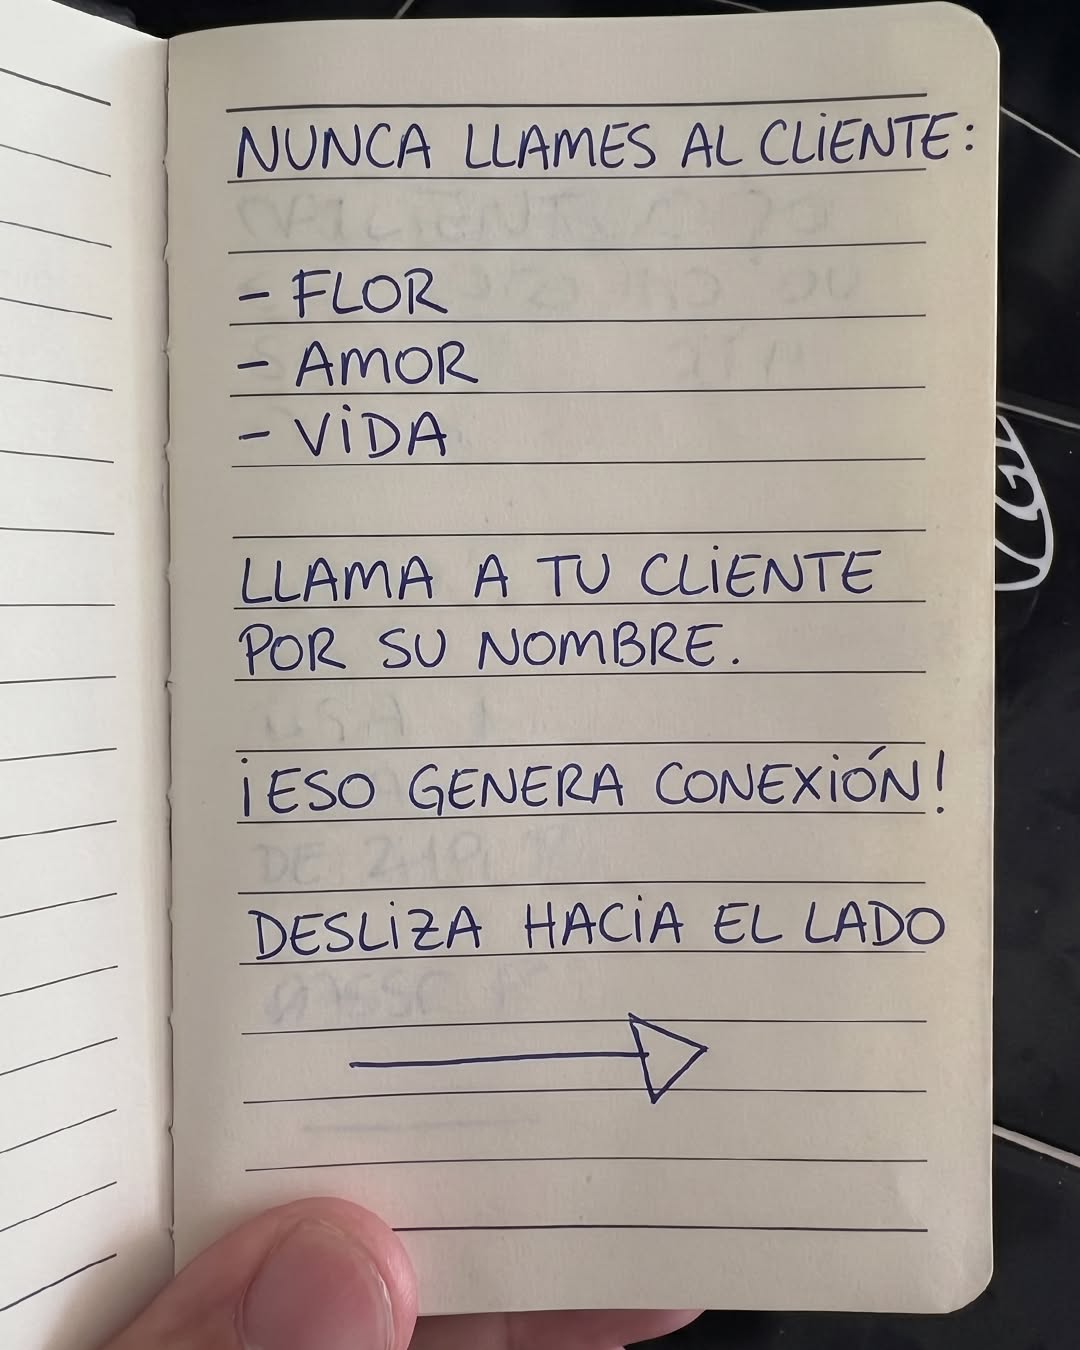 NUNCA LLAMES AL CLIENTE:
- FLOR
- AMOR
- VIDA
LLAMA A TU CLIENTE
POR SU NOMBRE.
¡ESO GENERA CONEXIÓN!
DESLIZA HACIA EL LADO